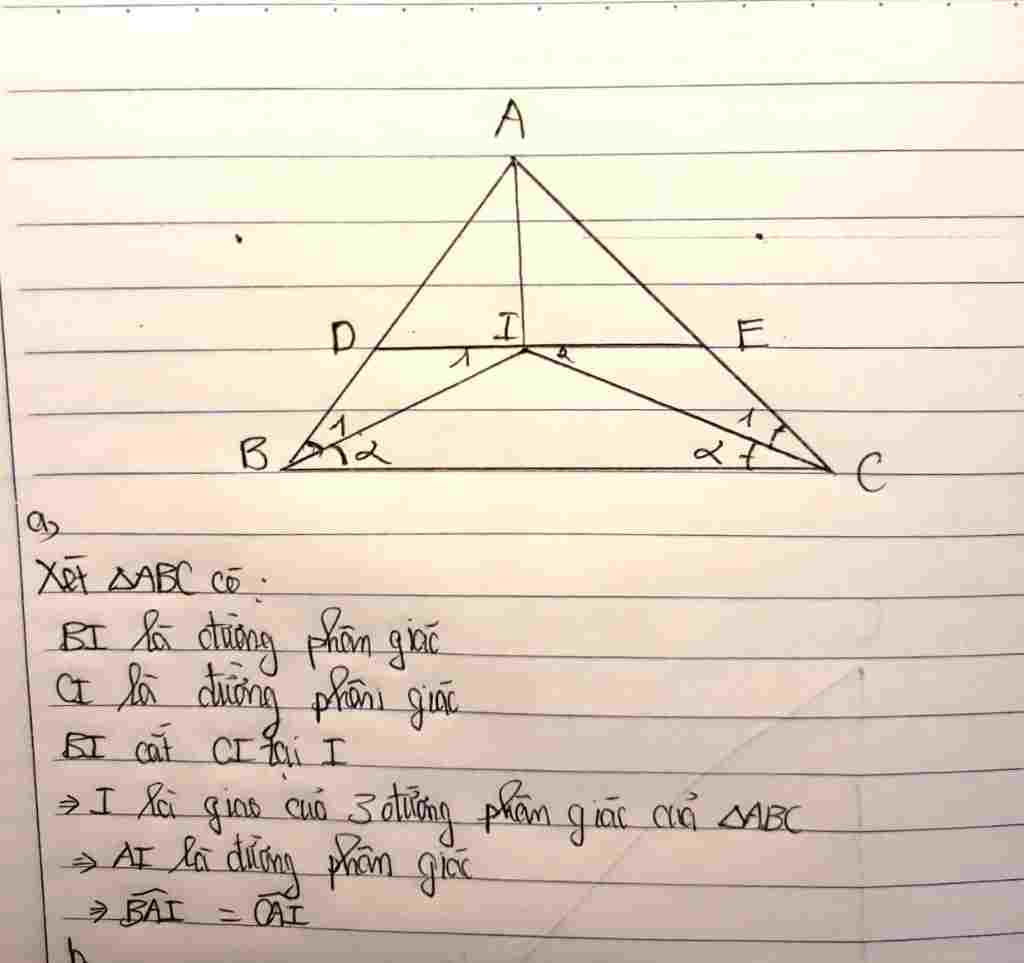 A
D I E
1 2
1 1
B 2 2 C
a,
Xét ΔABC có:
BI là đường phân giác
CI là đường phân giác
BI cắt CI tại I
⇒ I là giao của 3 đường phân giác của ΔABC
⇒ AI là đường phân giác
⇒ B̂AI = ĈAI
b